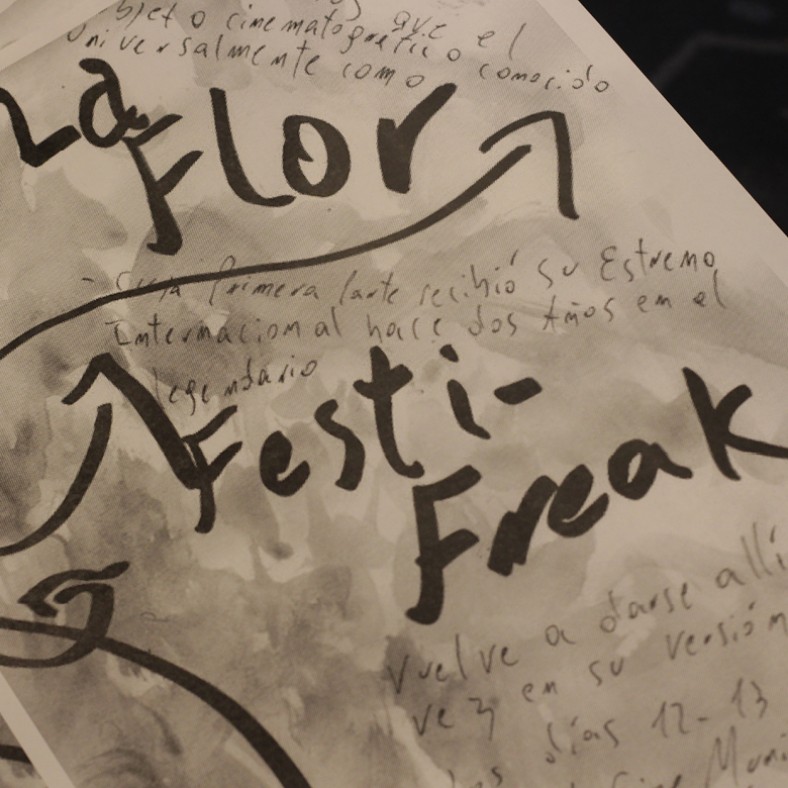 objeto cinematográfico que el
universalmente como conocido
La
Flor
- Cuya Primera Parte recibió su Estreno
Internacional hace dos Años en el
legendario
Festi-
Freak
Vuelve a darse allí
vez en su versión
los días 12-13
Cine Muni